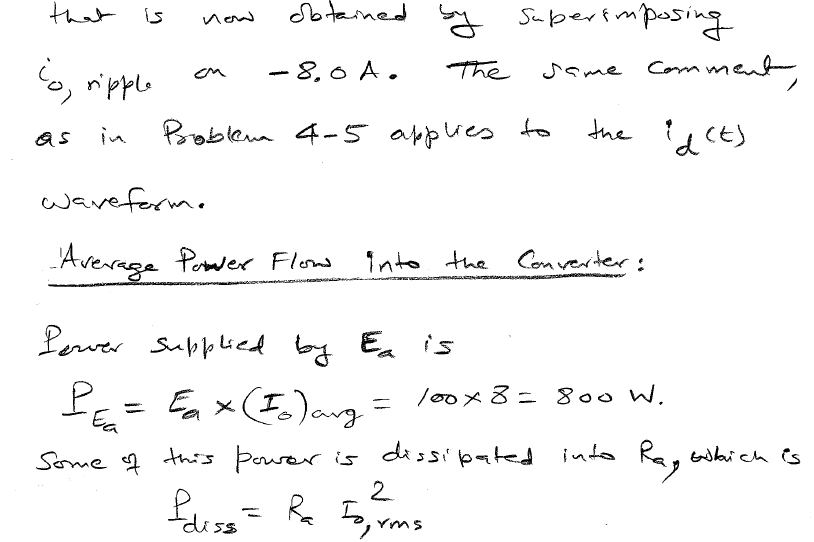 that is now obtained by superimposing
i₀, ripple on -8.0 A. The same comment,
as in Problem 4-5 applies to the i_d(t)
waveform.
Average Power Flow into the Converter:
Power supplied by Eₐ is
P_Eₐ = Eₐ × (I₀)avg = 100 × 8 = 800 W.
Some of this power is dissipated into Rₐ, which is
P_diss = Rₐ I₀,rms²